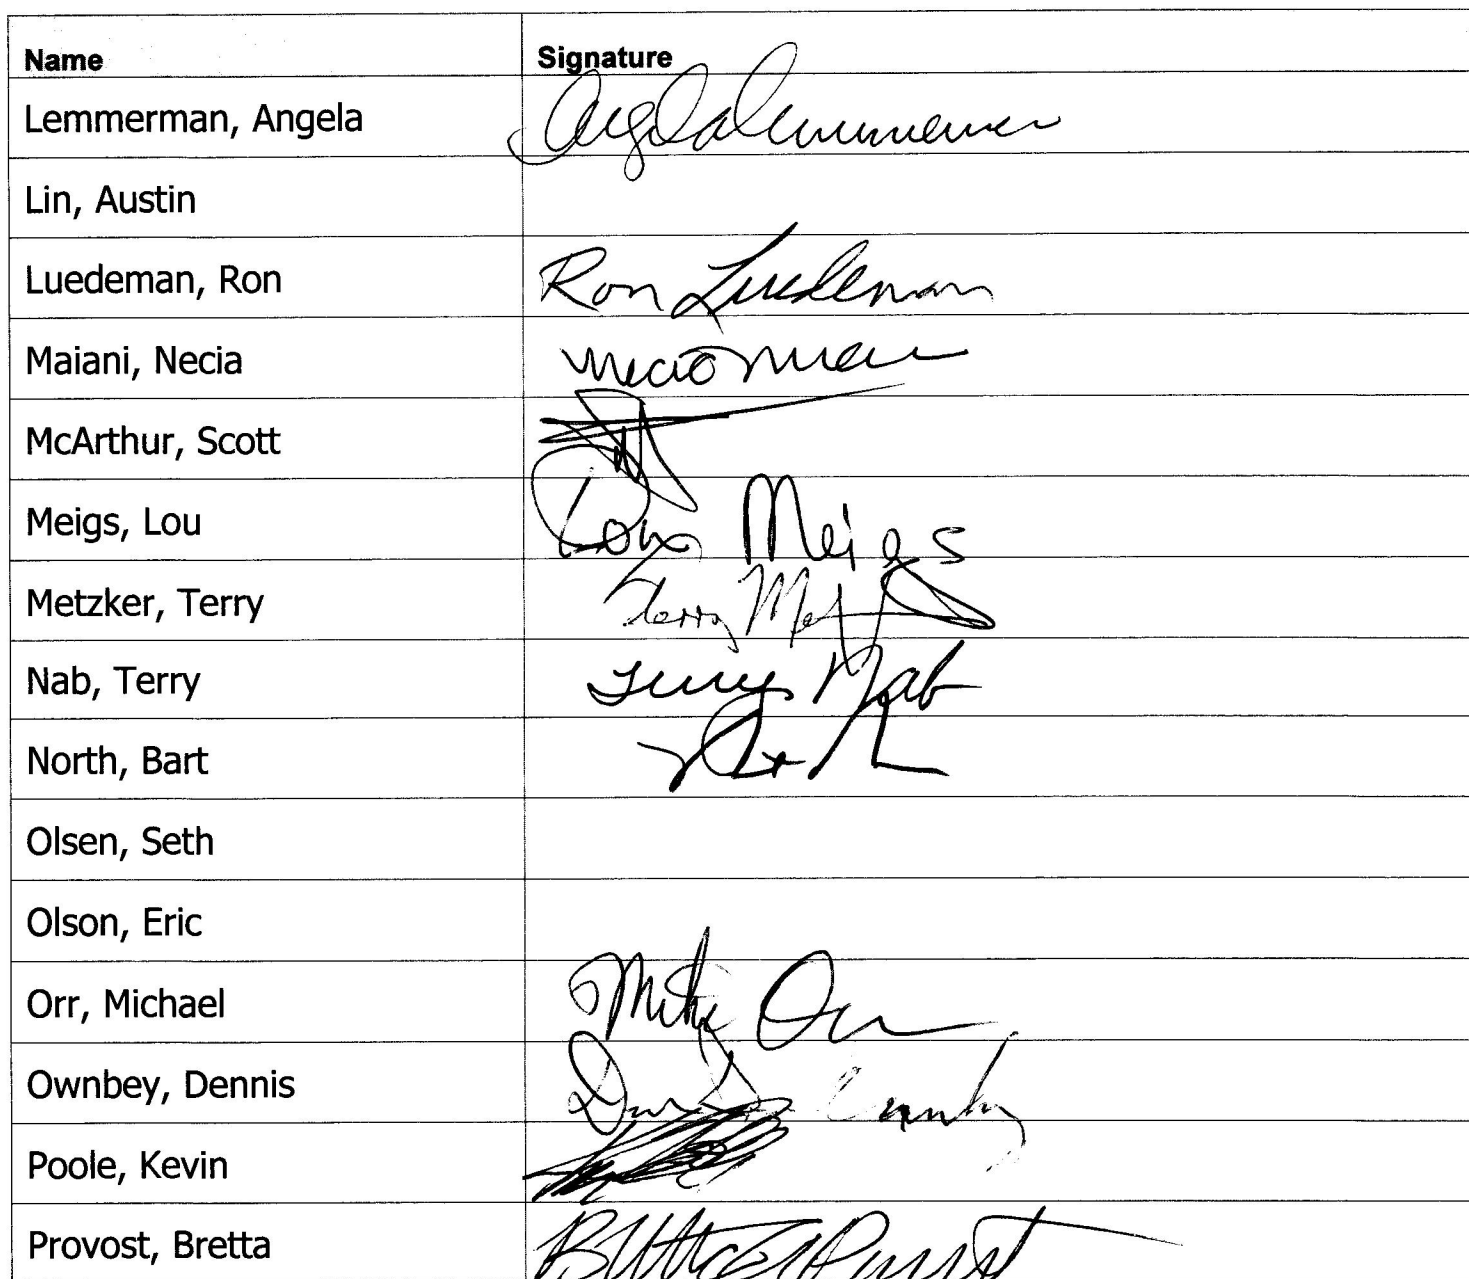 Name Signature
Lemmerman, Angela Angela Lemmerman
Lin, Austin
Luedeman, Ron Ron Luedeman
Maiani, Necia Necia
McArthur, Scott
Meigs, Lou Lou Meigs
Metzker, Terry Terry
Nab, Terry Terry Nab
North, Bart
Olsen, Seth
Olson, Eric
Orr, Michael Mike Orr
Ownbey, Dennis
Poole, Kevin
Provost, Bretta Bretta Provost